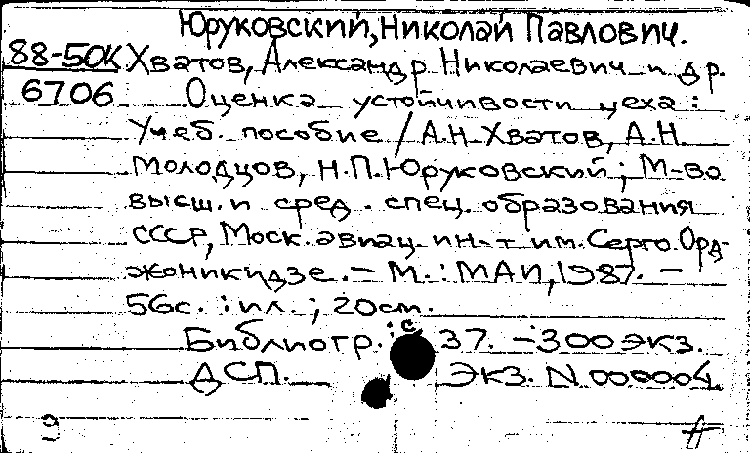 Юруковский, Николай Павлович.
88-50К Хватов, Александр Николаевич и др.
6706 Оценка устойчивости цеха :
Учеб. пособие / А.Н. Хватов, А.Н.
Молодцов, Н.П. Юруковский ; М-во
высш. и сред. спец. образования
СССР, Моск. авиац. ин-т им. Серго Орд-
жоникидзе. - М. : МАИ, 1987. -
56с. : ил. ; 20см.
Библиогр. : с 37. - 300 экз.
ДСП. Экз. N 000004.